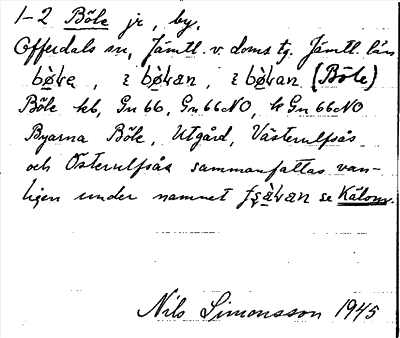 1-2 Böle jr, by.
Offerdals sn, Jämtl. v. doms tg. Jämtl. län
(Böle)
Böle kb, Gn 66, Gn 66 NO, le Gn 66 NO
Byarna Böle, Utgård, Västerulfsås
och Österulfsås sammanfattas van-
ligen under namnet se Kälom.
Nils Simonsson 1945